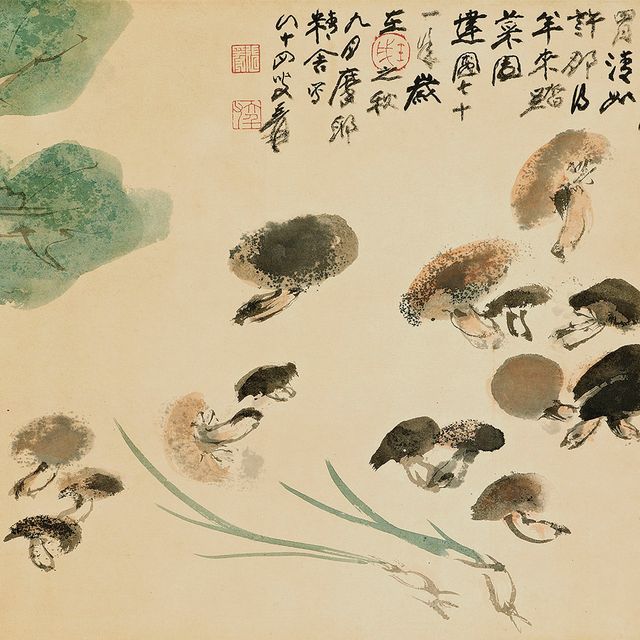 胃清如
許那得
羊來踏
菜園
建國七十
一年歲
在壬戌之秋
九月摩耶
精舍寫
八十四叟爰